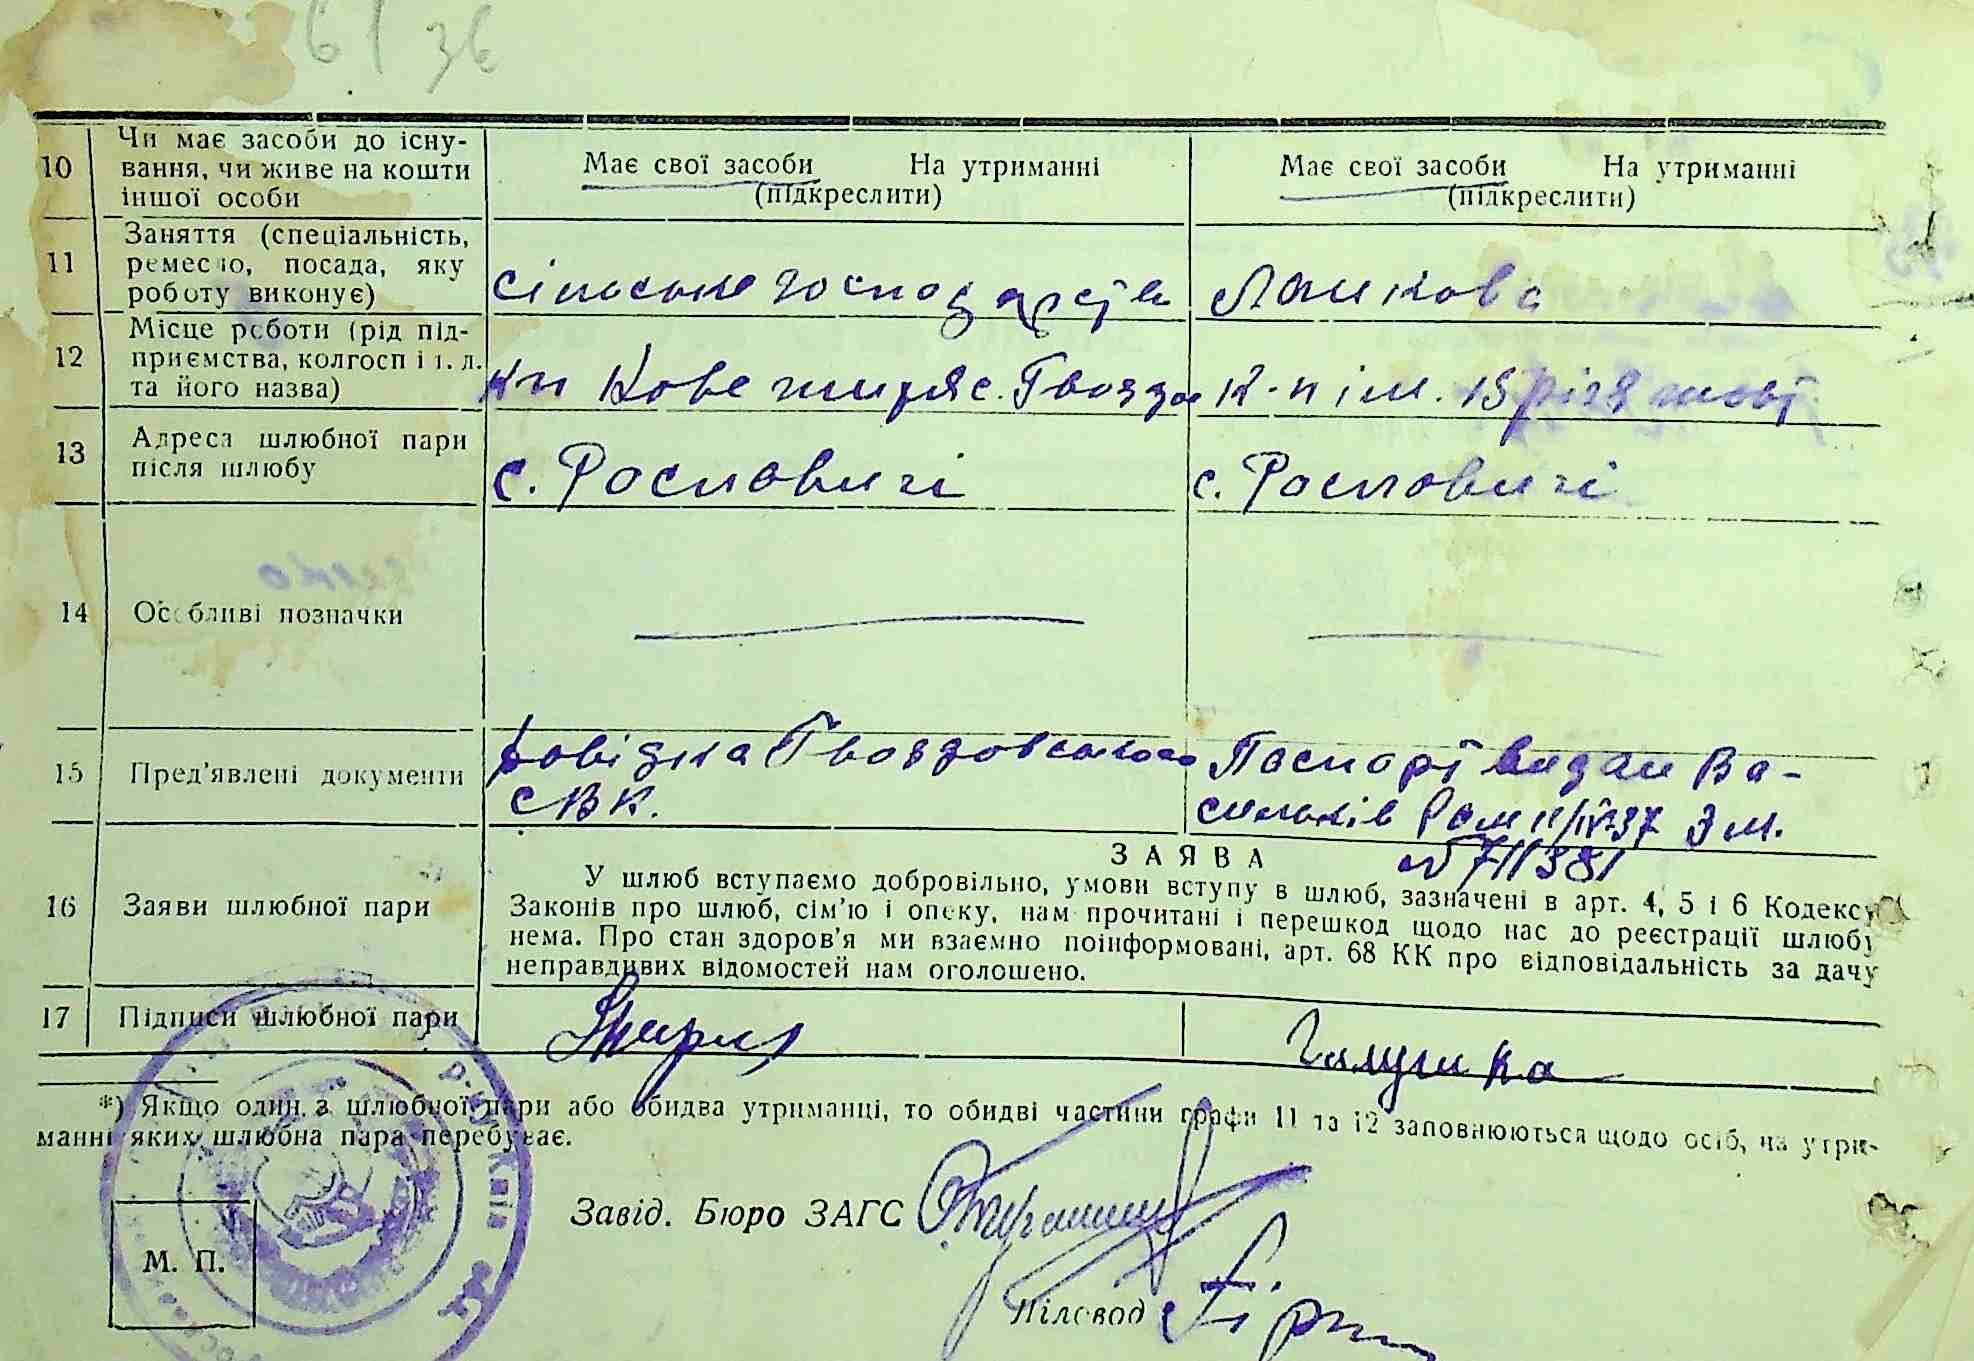 36
10 Чи має засоби до існу-
вання, чи живе на кошти
іншої особи
Має свої засоби На утриманні
(підкреслити)
Має свої засоби На утриманні
(підкреслити)
11 Заняття (спеціальність,
ремесло, посада, яку
роботу виконує)
сільське господарство
Ланкова
12 Місце роботи (рід під-
приємства, колгосп і т. д.
та його назва)
с. Гвозда
К-п ім. 15 річя жовт
13 Адреса шлюбної пари
після шлюбу
с. Рославичі
с. Рославичі
14 Особливі позначки
15 Пред'явлені документи
довідка Гвоздовського
СВК.
Паспорт видан Ва-
сильків Рам 11/IV-37 ЭМ.
№ 711381
16 Заяви шлюбної пари
ЗАЯВА
У шлюб вступаємо добровільно, умови вступу в шлюб, зазначені в арт. 4, 5 і 6 Кодексу
Законів про шлюб, сім'ю і опеку, нам прочитані і перешкод щодо нас до реєстрації шлюбу
нема. Про стан здоров'я ми взаємно поінформовані, арт. 68 КК про відповідальність за дачу
неправдивих відомостей нам оголошено.
17 Підписи шлюбної пари
Галушка
*) Якщо один з шлюбної пари або обидва утриманці, то обидві частини графи 11 та 12 заповнюються щодо осіб, на утри-
манні яких шлюбна пара перебуває.
Завід. Бюро ЗАГС
М. П.
Діловод
р-ну Київ